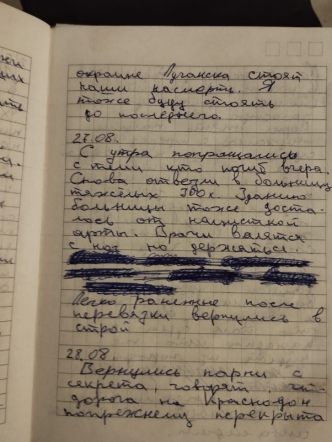 окраине Луганска стоят
наши насмерть. Я
тоже буду стоять
до последнего.
27.08.
С утра попрощались
с теми кто погиб вчера.
Снова отвезли в больницу
тяжёлых 300х. Зданию
больницы тоже доста
лось от нацистской
арты. Врачи валятся
с ног но держаться.
Легко раненные после
перевязки вернулись в
строй
28.08.
Вернулись парни с
секрета, говорят, что
дорога на Краснодон
попрежнему перекрыта